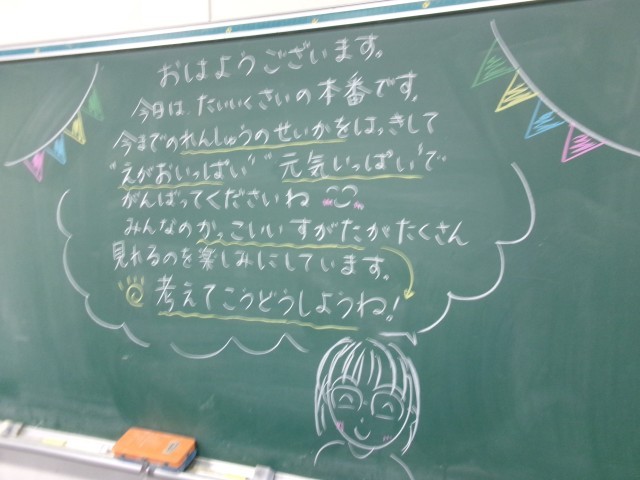 おはようございます。
今日は、たいいくさいの本番です。
今までのれんしゅうのせいかをはっきして
"えがおいっぱい" "元気いっぱい"で
がんばってくださいね
みんなのかっこいいすがたがたくさん
見れるのを楽しみにしています。
考えてこうどうしようね!